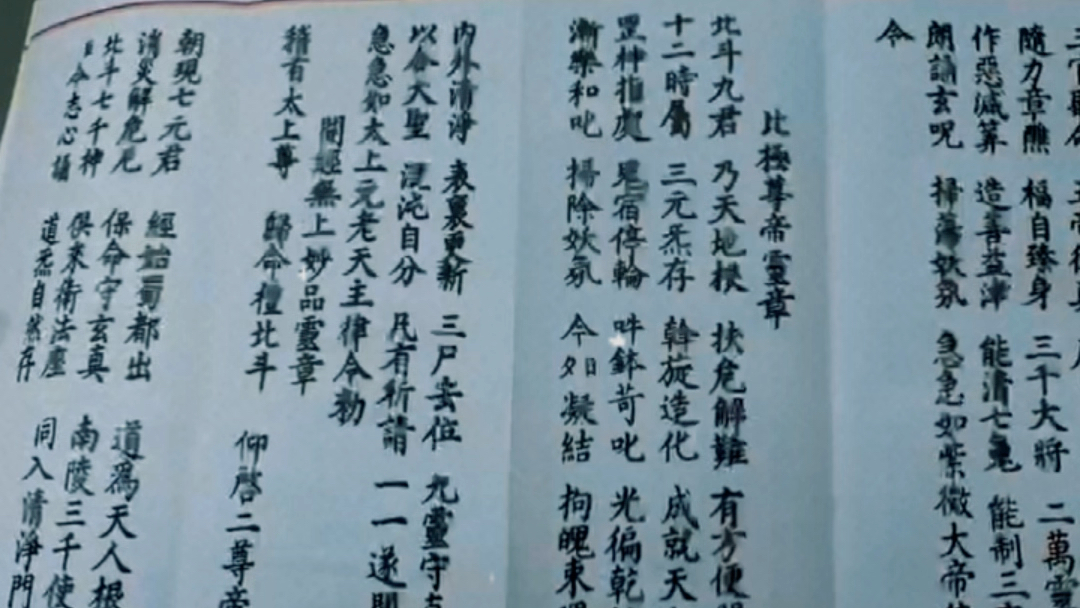 隨力章醮 福自臻身 三千大將 二萬
作惡減筭 造善益津 能清七鬼 能制三
朗誦玄呪 掃蕩妖氛 急急如紫微大帝
令
比極尊帝靈章
北斗九君 乃天地根 扶危解難 有方便
十二時屬 三元炁存 斡旋造化 成就天
罡神指處 星宿停輪 吽鉢苛叱 光徧乾
漸樂和叱 掃除妖氛 今如凝結 拘魄東
內外清淨 表裏更新 三尸安位 九靈守
以命大聖 混沌自分 凡有祈請 一一遂
急急如太上元老天主律令勑
開經無上妙品靈章
稽首太上尊 歸命禮北斗 仰啓二尊帝
朝現七元君 經始蜀都出 道爲天人根
消災解危厄 保命守玄真 南陵三千使
北斗七千神 俱來衛法壇 同入清淨門
今志心誦 道炁自然存